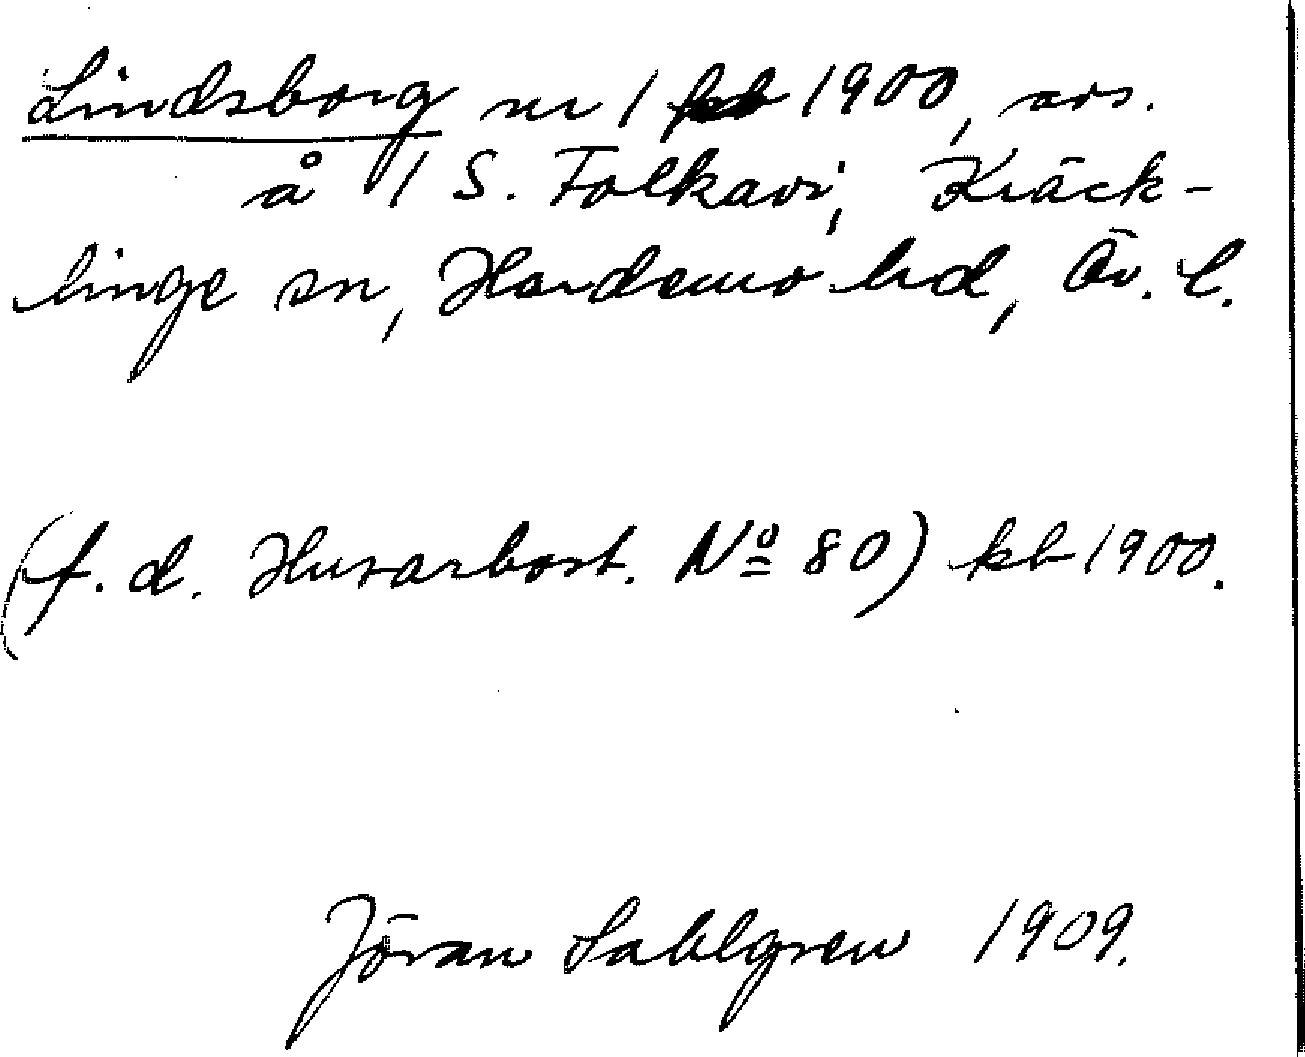 Lindsborg nr 1 kb 1900, avs.
å 1 S. Folkavi, Kräck-
linge sn, Hardemo hd, Ör. l.
(f. d. Husarbost. Nº 80) kb 1900.
Jöran Sahlgren 1909.